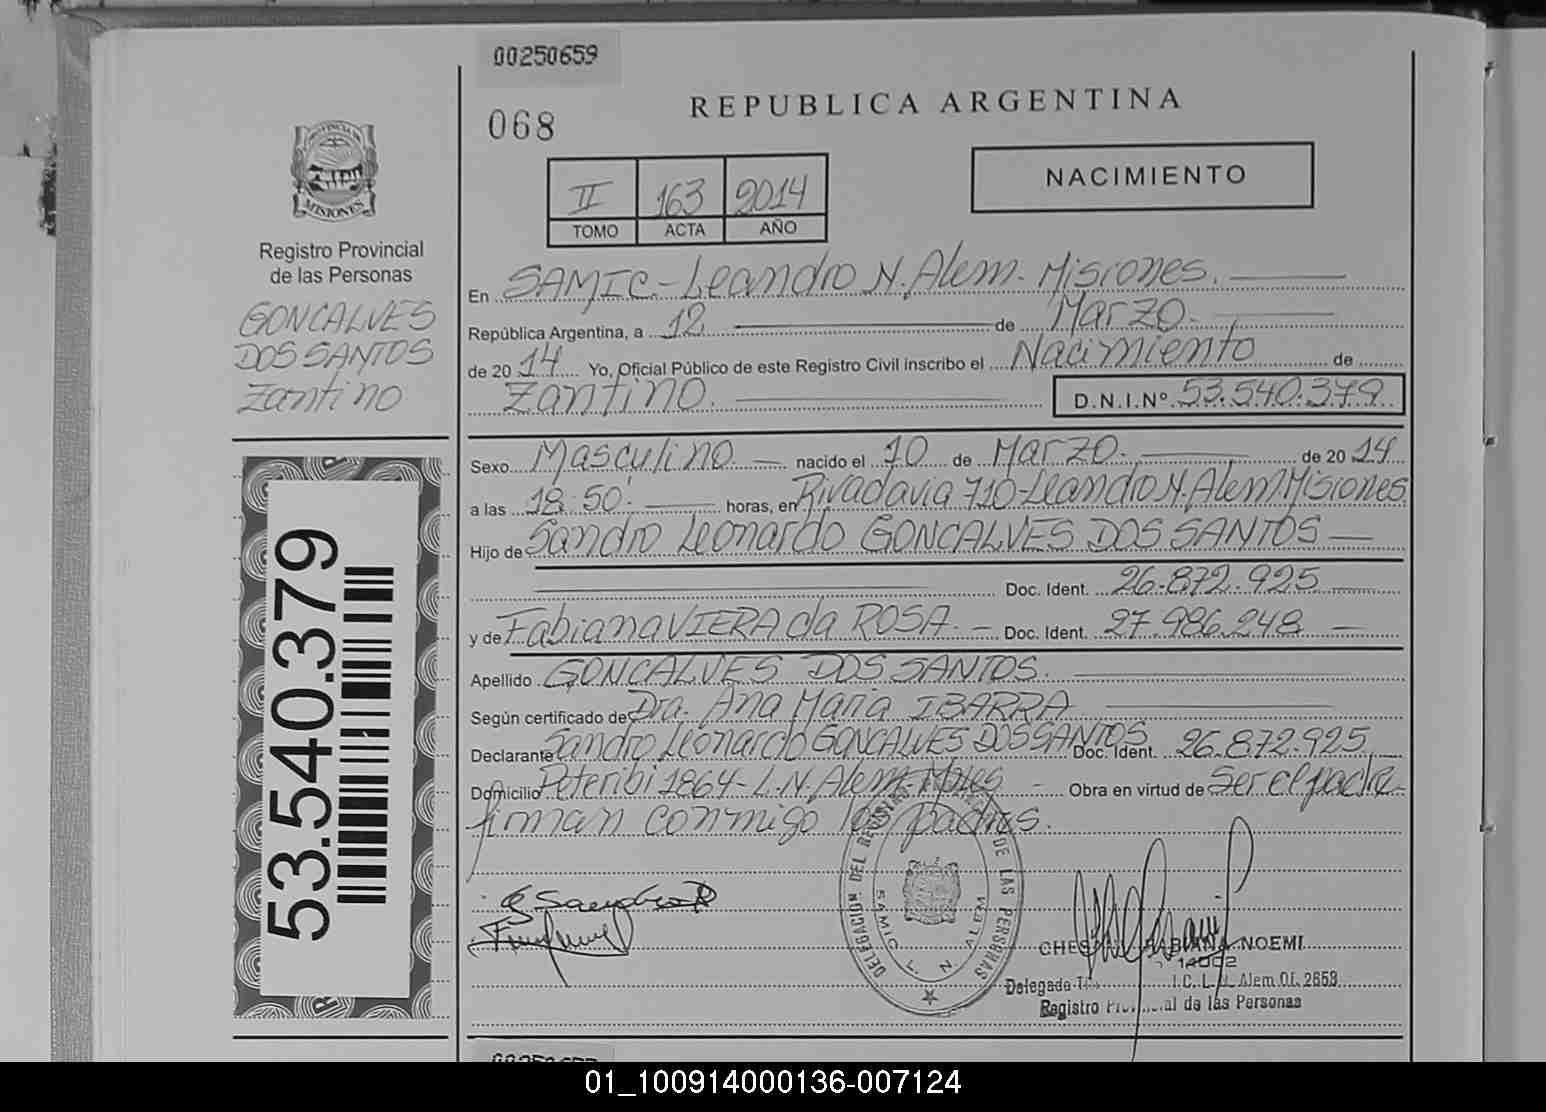 00250659
068
REPUBLICA ARGENTINA
NACIMIENTO
II 163 2014
TOMO ACTA AÑO
PROVINCIA DE
MISIONES
Registro Provincial
de las Personas
GONCALVES
DOS SANTOS
Zantino
En SAMIC - Leandro N. Alem - Misiones.
República Argentina, a 12 de Marzo.
de 20 14 Yo, Oficial Público de este Registro Civil inscribo el Nacimiento de
Zantino. D.N.I.Nº 53.540.379
Sexo Masculino nacido el 10 de Marzo. de 20 14
a las 18:50' horas, en Rivadavia 710 - Leandro N. Alem Misiones
Hijo de Sandro Leonardo GONCALVES DOS SANTOS
Doc. Ident. 26.872.925
y de Fabiana VIERA da ROSA. Doc. Ident. 27.986.248
Apellido GONCALVES DOS SANTOS.
Según certificado de Dra. Ana Maria IBARRA
Declarante Sandro Leonardo GONCALVES DOS SANTOS Doc. Ident. 26.872.925
Domicilio Peteribi 1864 - L.N. Alem - Mnes Obra en virtud de Ser el padre
firman conmigo los padres.
53.540.379
DELEGACION DEL REGISTRO DE LAS PERSONAS
SAMIC L. N. ALEM
FABIANA NOEMI
14002
Delegada I.C. L.N. Alem Of. 2653
Registro Provincial de las Personas
01_100914000136-007124